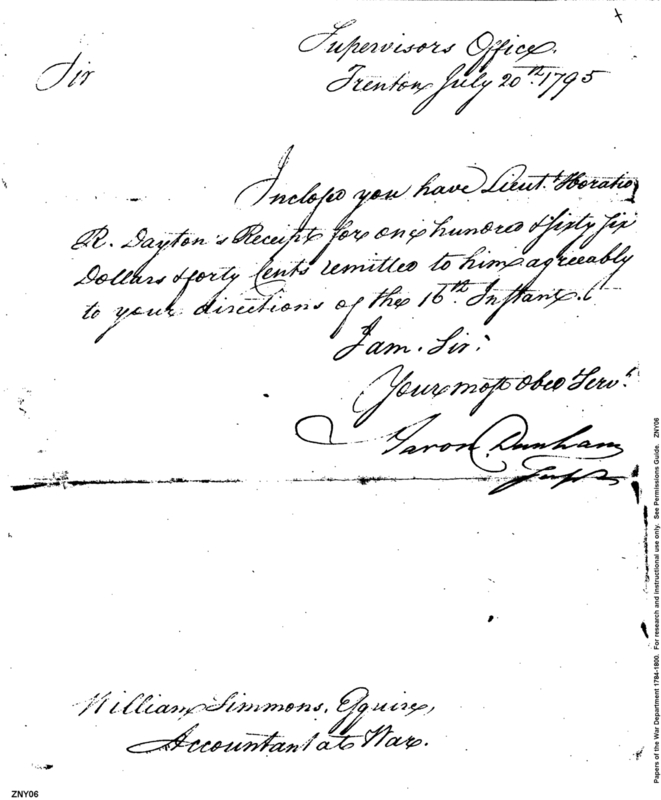 Supervisors Office.
Trenton July 20th. 1795
Sir
Inclosed you have Lieut.t Horatio
R. Dayton's Receipt for one hundred & sixty six
Dollars & forty Cents remitted to him agreeably
to your directions of the 16th. Instant.
I am. Sir.
Your most Obed Serv.t
Aaron Dunham
Supr
William Simmons, Esquire,
Accountant at War.
ZNY06
Papers of the War Department 1784-1800. For research and instructional use only. See Permissions Guide. ZNY06